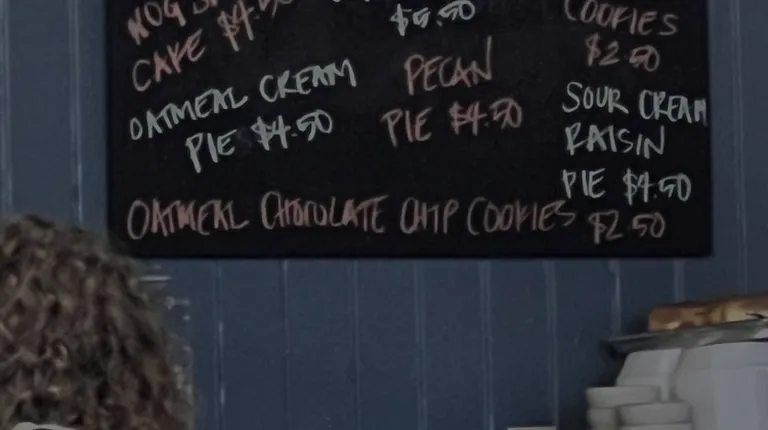 CAKE
$5.50
COOKIES
$2.50
OATMEAL CREAM
PIE $4.50
PECAN
PIE $4.50
SOUR CREAM
RAISIN
PIE $4.50
OATMEAL CHOCOLATE CHIP COOKIES $2.50